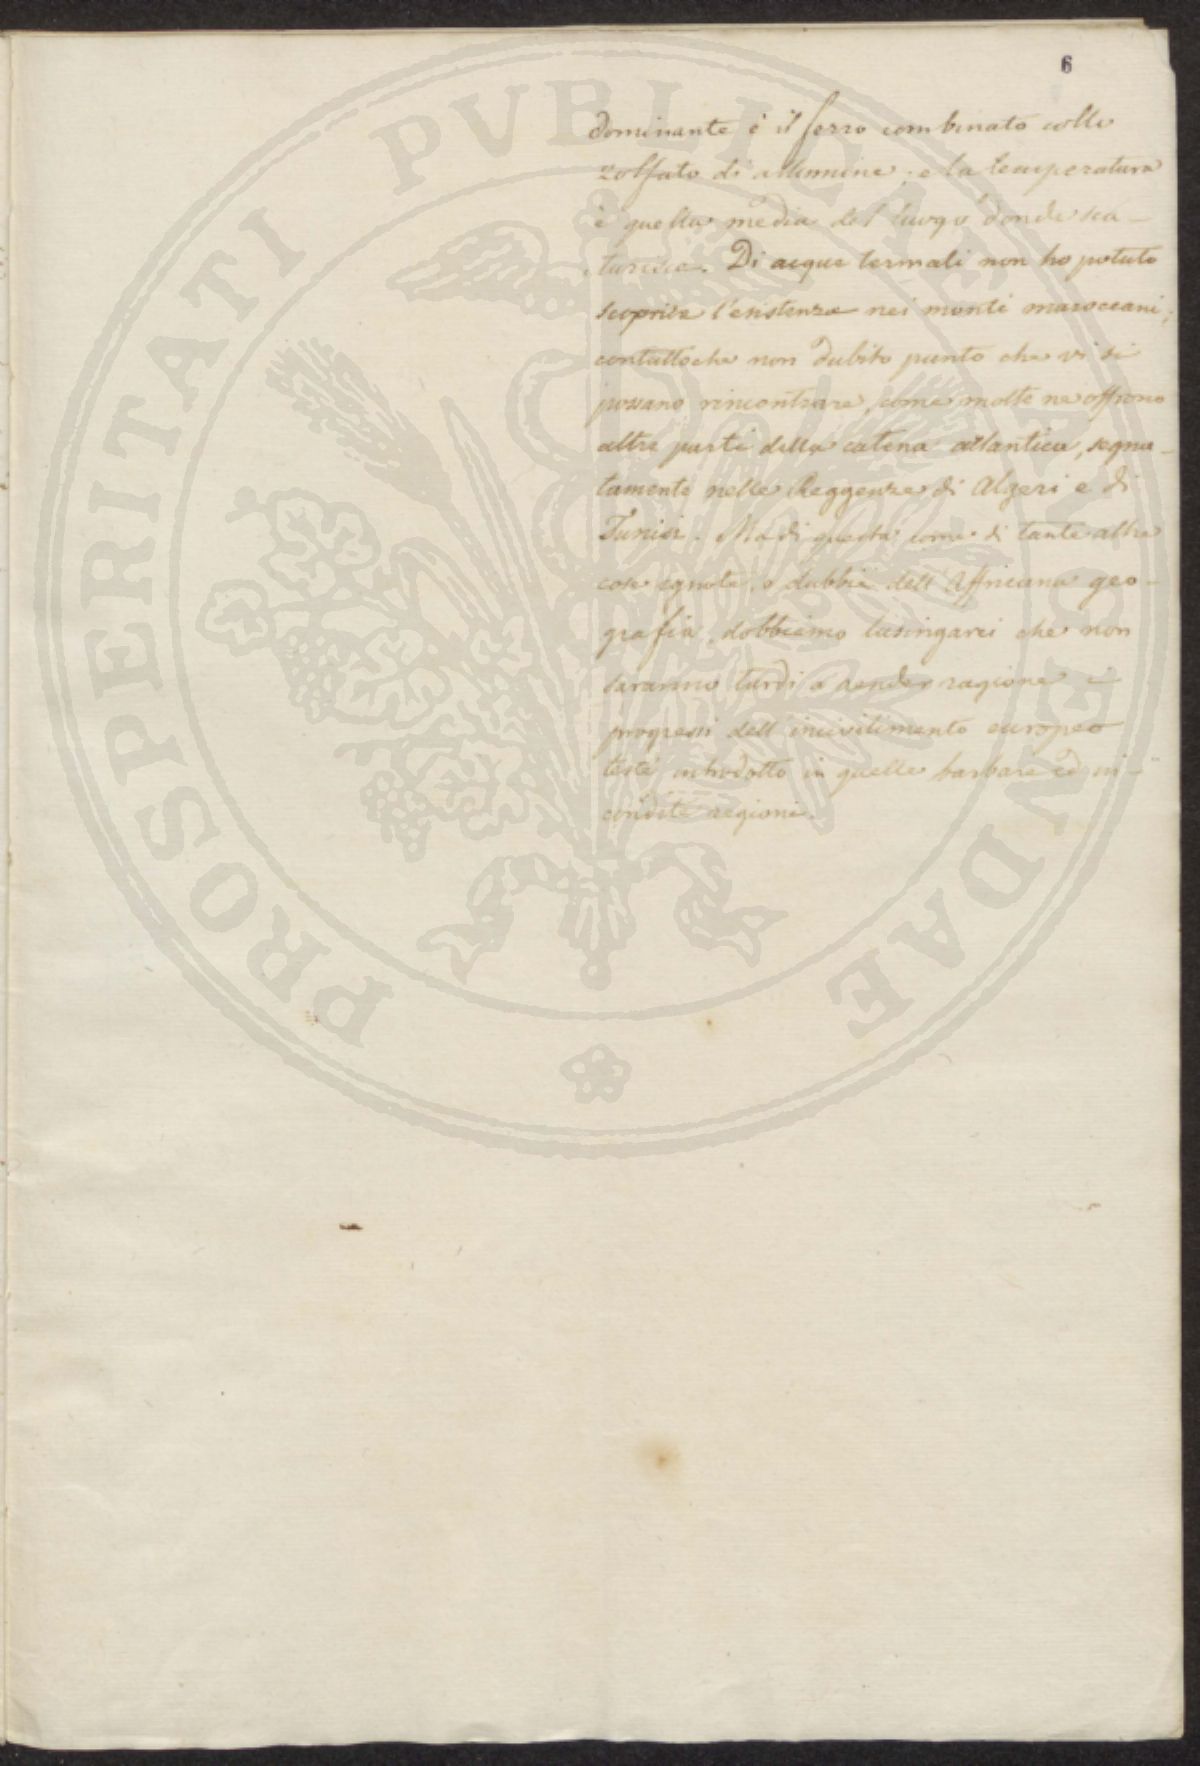 6
dominante è il ferro combinato collo
zolfato di allumine; e la temperatura
è quella media del luogo donde sca-
turisce. Di acque termali non ho potuto
scoprire l'esistenza nei monti maroccani;
contuttoche non dubito punto che vi si
possano rincontrare, come molte ne offrono
altre parti della catena atlantica, segna-
tamente nelle Reggenze di Algeri e di
Tunisi. Ma di questa come di tante altre
cose ignote, o dubbie dell'Affricana geo-
grafia, dobbiamo lusingarci che non
saranno tardi a render ragione i
progressi dell'incivilimento europeo
testè introdotto in quelle barbare ed in-
condite regioni.
PROSPERITATI PVBLICAE AVGENDAE